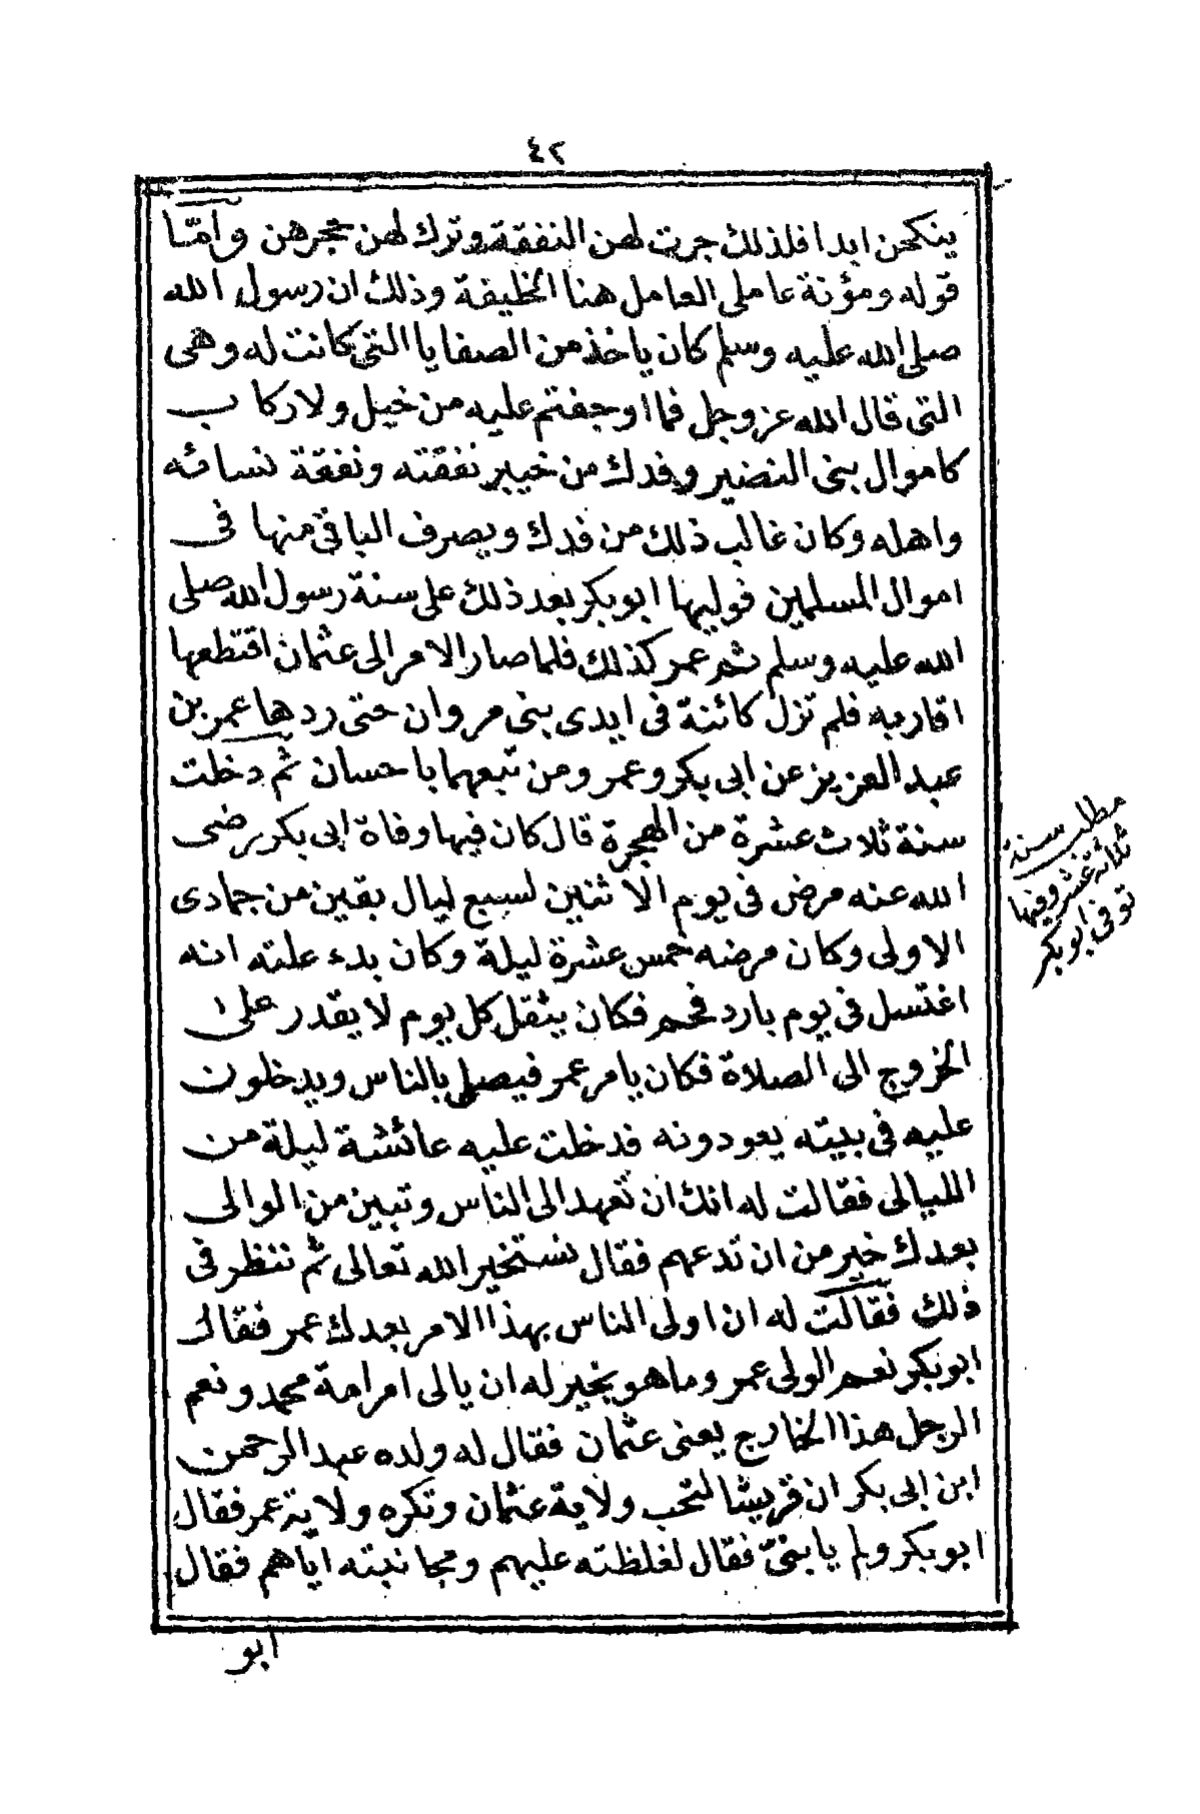 ٤٢
ينكحن ابدا فلذلك جرت لهن النفقة وترك لهن حجرهن وامّا
قوله ومؤنة عاملى العامل هنا الخليفة وذلك ان رسول الله
صلى الله عليه وسلم كان ياخذ من الصفايا التى كانت له وهى
التى قال الله عز وجل فما اوجفتم عليه من خيل ولا ركاب
كاموال بنى النضير وفدك من خيبر نفقته ونفقة نسائه
واهله وكان غالب ذلك من فدك ويصرف الباقى منها فى
اموال المسلمين فوليها ابوبكر بعد ذلك على سنة رسول الله صلى
الله عليه وسلم ثم عمر كذلك فلما صار الامر الى عثمان اقتطعها
اقاربه فلم تزل كائنة فى ايدى بنى مروان حتى ردها عمر بن
عبد العزيز عن ابى بكر وعمر ومن تبعهما باحسان ثم دخلت
سنة ثلاث عشرة من الهجرة قال كان فيها وفاة ابى بكر رضى
الله عنه مرض فى يوم الاثنين لسبع ليال بقين من جمادى
الاولى وكان مرضه خمس عشرة ليلة وكان بدء علته انه
اغتسل فى يوم بارد فحم فكان يثقل كل يوم لا يقدر على
الخروج الى الصلاة فكان يامر عمر فيصلى بالناس ويدخلون
عليه فى بيته يعودونه فدخلت عليه عائشة ليلة من
الليالى فقالت له انك ان تعهد الى الناس وتبين من الوالى
بعدك خير من ان تدعهم فقال نستخير الله تعالى ثم ننظر فى
ذلك فقالت له ان اولى الناس بهذا الامر بعدك عمر فقال
ابوبكر نعم الولى عمر وما هو بخير له ان يالى امر امة محمد ونعم
الرجل هذا الخارج يعنى عثمان فقال له ولده عبد الرحمن
ابن ابى بكر ان قريشا لتحب ولاية عثمان وتكره ولاية عمر فقال
ابوبكر ولم يا بنىّ فقال لغلظته عليهم ومجانبته اياهم فقال
ابو
مطلب سنة
ثلاثة عشر وفيها
توفى ابوبكر